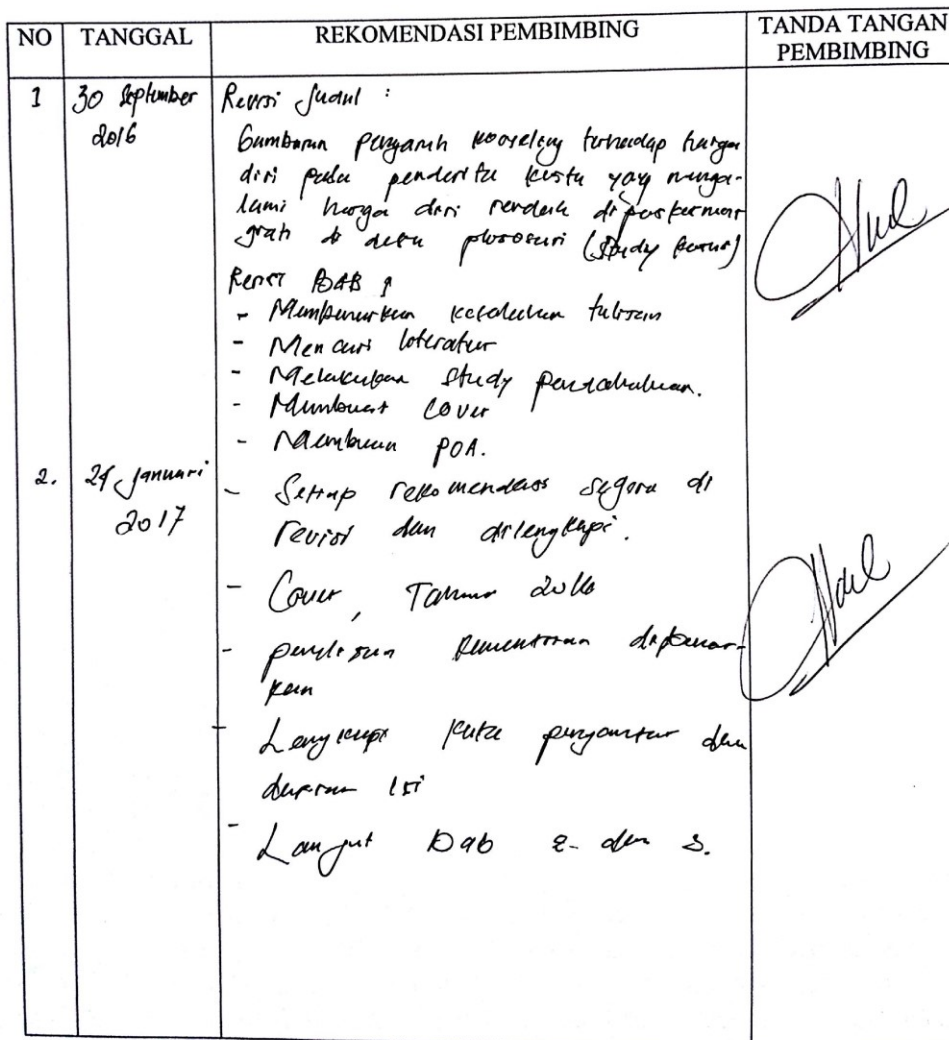 NO TANGGAL REKOMENDASI PEMBIMBING TANDA TANGAN PEMBIMBING
1 30 September 2016 Revisi Judul :
Gambaran pengaruh konseling terhadap harga
diri pada penderita kusta yang menga-
lami harga diri rendah di puskesmas
grati di desa plososari (Study kasus)
Revisi BAB 1
- Membenarkan kesalahan tulisan
- Mencari literatur
- Melakukan Study pendahuluan.
- Membuat Cover
- Membuat POA.
2. 24 Januari 2017 - Setiap rekomendasi segera di
revisi dan dilengkapi.
- Cover, Tahun 2016
- penulisan dibenar-
kan
- Lengkapi kata pengantar dan
daftar isi
- Lanjut Bab 2 dan 3.